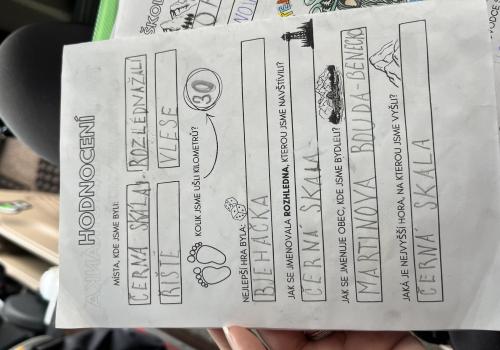 HODNOCENÍ
MÍSTA, KDE JSME BYLI:
ČERNÁ SKÁLA
ROZLEDNAZALI
ŘÍŠTĚ
VLESE
KOLIK JSME UŠLI KILOMETRŮ?
30
NEJLEPŠÍ HRA BYLA:
BĚHAČKA
JAK SE JMENOVALA ROZHLEDNA, KTEROU JSME NAVŠTÍVILI?
ČERNÁ SKALA
JAK SE JMENUJE OBEC, KDE JSME BYDLELI?
MARTINOVA BOUDA-BENECKO
JAKÁ JE NEJVYŠŠÍ HORA, NA KTEROU JSME VYŠLI?
ČERNÁ SKALA